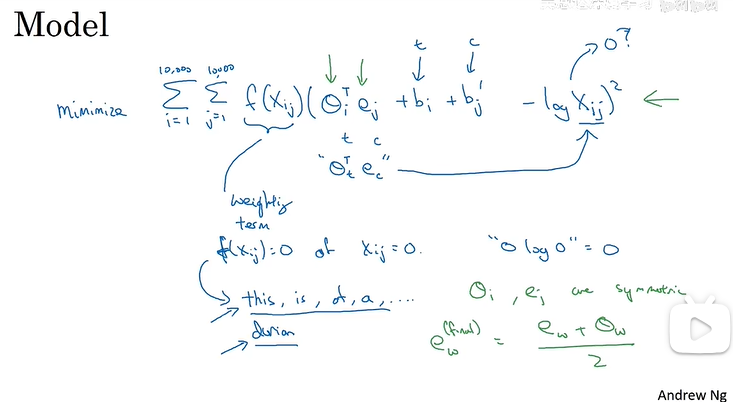 Model
t c 0?
minimize 10,000 Σ i=1 10,000 Σ j=1 f(Xij)(θiᵀ ej + bi + bj' - log Xij)²
t c
"θtᵀ ec"
weighting
term
f(Xij)=0 if Xij=0. "0 log 0" = 0
this, is, of, a, .... θi, ej are symmetric
durian
ew(final) = ew + θw / 2
Andrew Ng